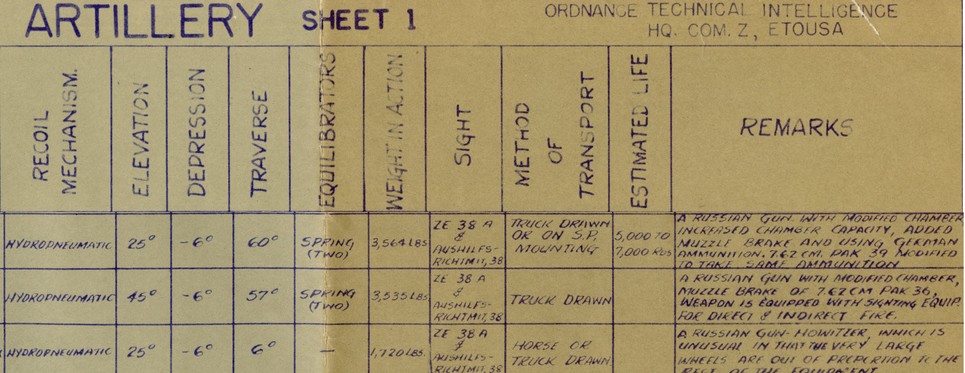 ARTILLERY SHEET 1
ORDNANCE TECHNICAL INTELLIGENCE
HQ. COM. Z, ETOUSA
RECOIL
MECHANISM.
ELEVATION
DEPRESSION
TRAVERSE
EQUILIBRATORS
WEIGHT IN ACTION
SIGHT
METHOD
OF
TRANSPORT
ESTIMATED LIFE
REMARKS
HYDROPNEUMATIC
25°
-6°
60°
SPRING
(TWO)
3,564 LBS
ZE 38 A
&
AUSHILFS-
RICHTMIT, 38
TRUCK DRAWN
OR ON S.P.
MOUNTING
5,000 TO
7,000 RDS
A RUSSIAN GUN. WITH MODIFIED CHAMBER
INCREASED CHAMBER CAPACITY, ADDED
MUZZLE BRAKE AND USING GERMAN
AMMUNITION. 7.62 CM. PAK 39 MODIFIED
TO TAKE SAME AMMUNITION
HYDROPNEUMATIC
45°
-6°
57°
SPRING
(TWO)
3,535 LBS
ZE 38 A
&
AUSHILFS-
RICHTMIT, 38
TRUCK DRAWN
A RUSSIAN GUN WITH MODIFIED CHAMBER,
MUZZLE BRAKE OF 7.62 CM PAK 36,
WEAPON IS EQUIPPED WITH SIGHTING EQUIP.
FOR DIRECT & INDIRECT FIRE.
HYDROPNEUMATIC
25°
-6°
6°
—
1,720 LBS.
ZE 38 A
&
AUSHILFS-
RICHTMIT, 38
HORSE OR
TRUCK DRAWN
A RUSSIAN GUN-HOWITZER, WHICH IS
UNUSUAL IN THAT THE VERY LARGE
WHEELS ARE OUT OF PROPORTION TO THE
REST OF THE EQUIPMENT